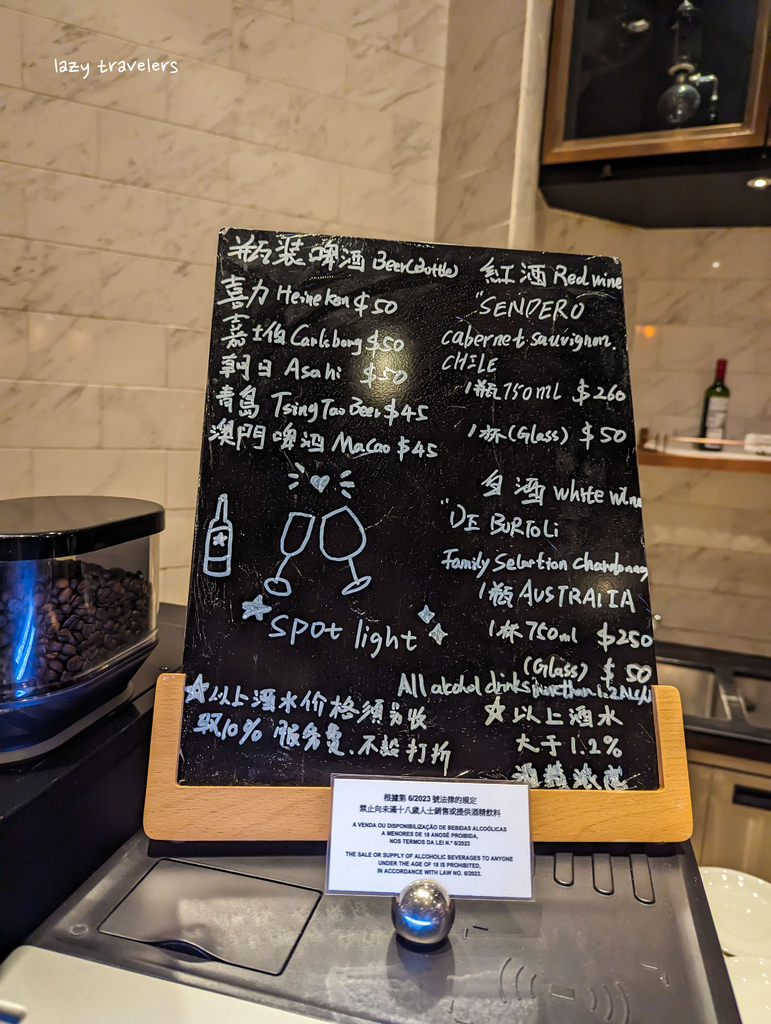 lazy travelers
瓶装啤酒 Beer(Bottle)
喜力 Heineken $50
嘉士伯 Carlsberg $50
朝日 Asahi $50
青島 TsingTao Beer $45
澳門啤酒 Macao $45
spot light
☆以上酒水价格須另收
取10%服务费.不設打折
紅酒 Red wine
"SENDERO"
cabernet sauvignon.
CHILE
1瓶750ml $260
1杯(Glass) $50
白酒 white wine
"DE BURTOLI
Family Selection chardonnay
1瓶 AUSTRALIA
1杯 750ml $250
(Glass) $50
All alcohol drinks
☆以上酒水
大于1.2%
根據第 6/2023 號法律的規定
禁止向未滿十八歲人士銷售或提供酒精飲料
A VENDA OU DISPONIBILIZAÇÃO DE BEBIDAS ALCOÓLICAS
A MENORES DE 18 ANOSÉ PROIBIDA,
NOS TERMOS DA LEI N.º 6/2023
THE SALE OR SUPPLY OF ALCOHOLIC BEVERAGES TO ANYONE
UNDER THE AGE OF 18 IS PROHIBITED,
IN ACCORDANCE WITH LAW NO. 6/2023.